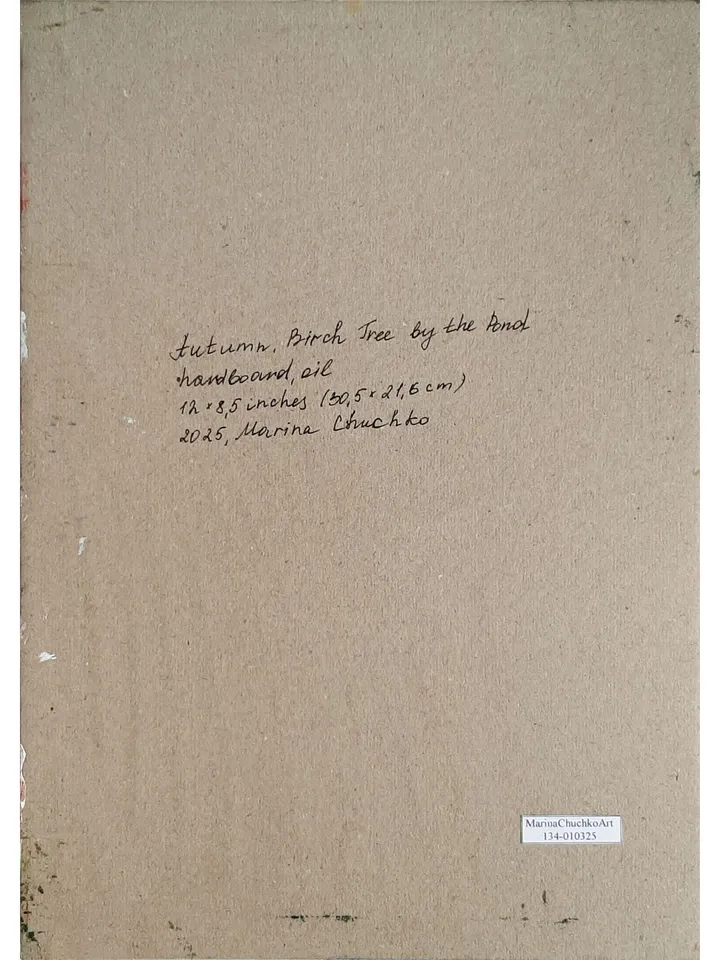 Autumn. Birch Tree by the Pond
hardboard, oil
12 × 8,5 inches (30,5 × 21,6 cm)
2025, Marina Chuchko
MarinaChuchkoArt
134-010325